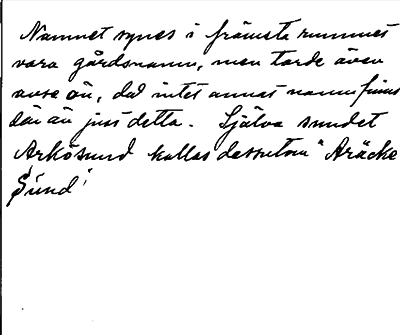 Namnet synes i främsta rummet
vara gårdsnamn, men torde även
avse ön, då intet annat namn finns
där än just detta. Själva sundet
Arkösund kallas dessutom "Aräcke
Sund"